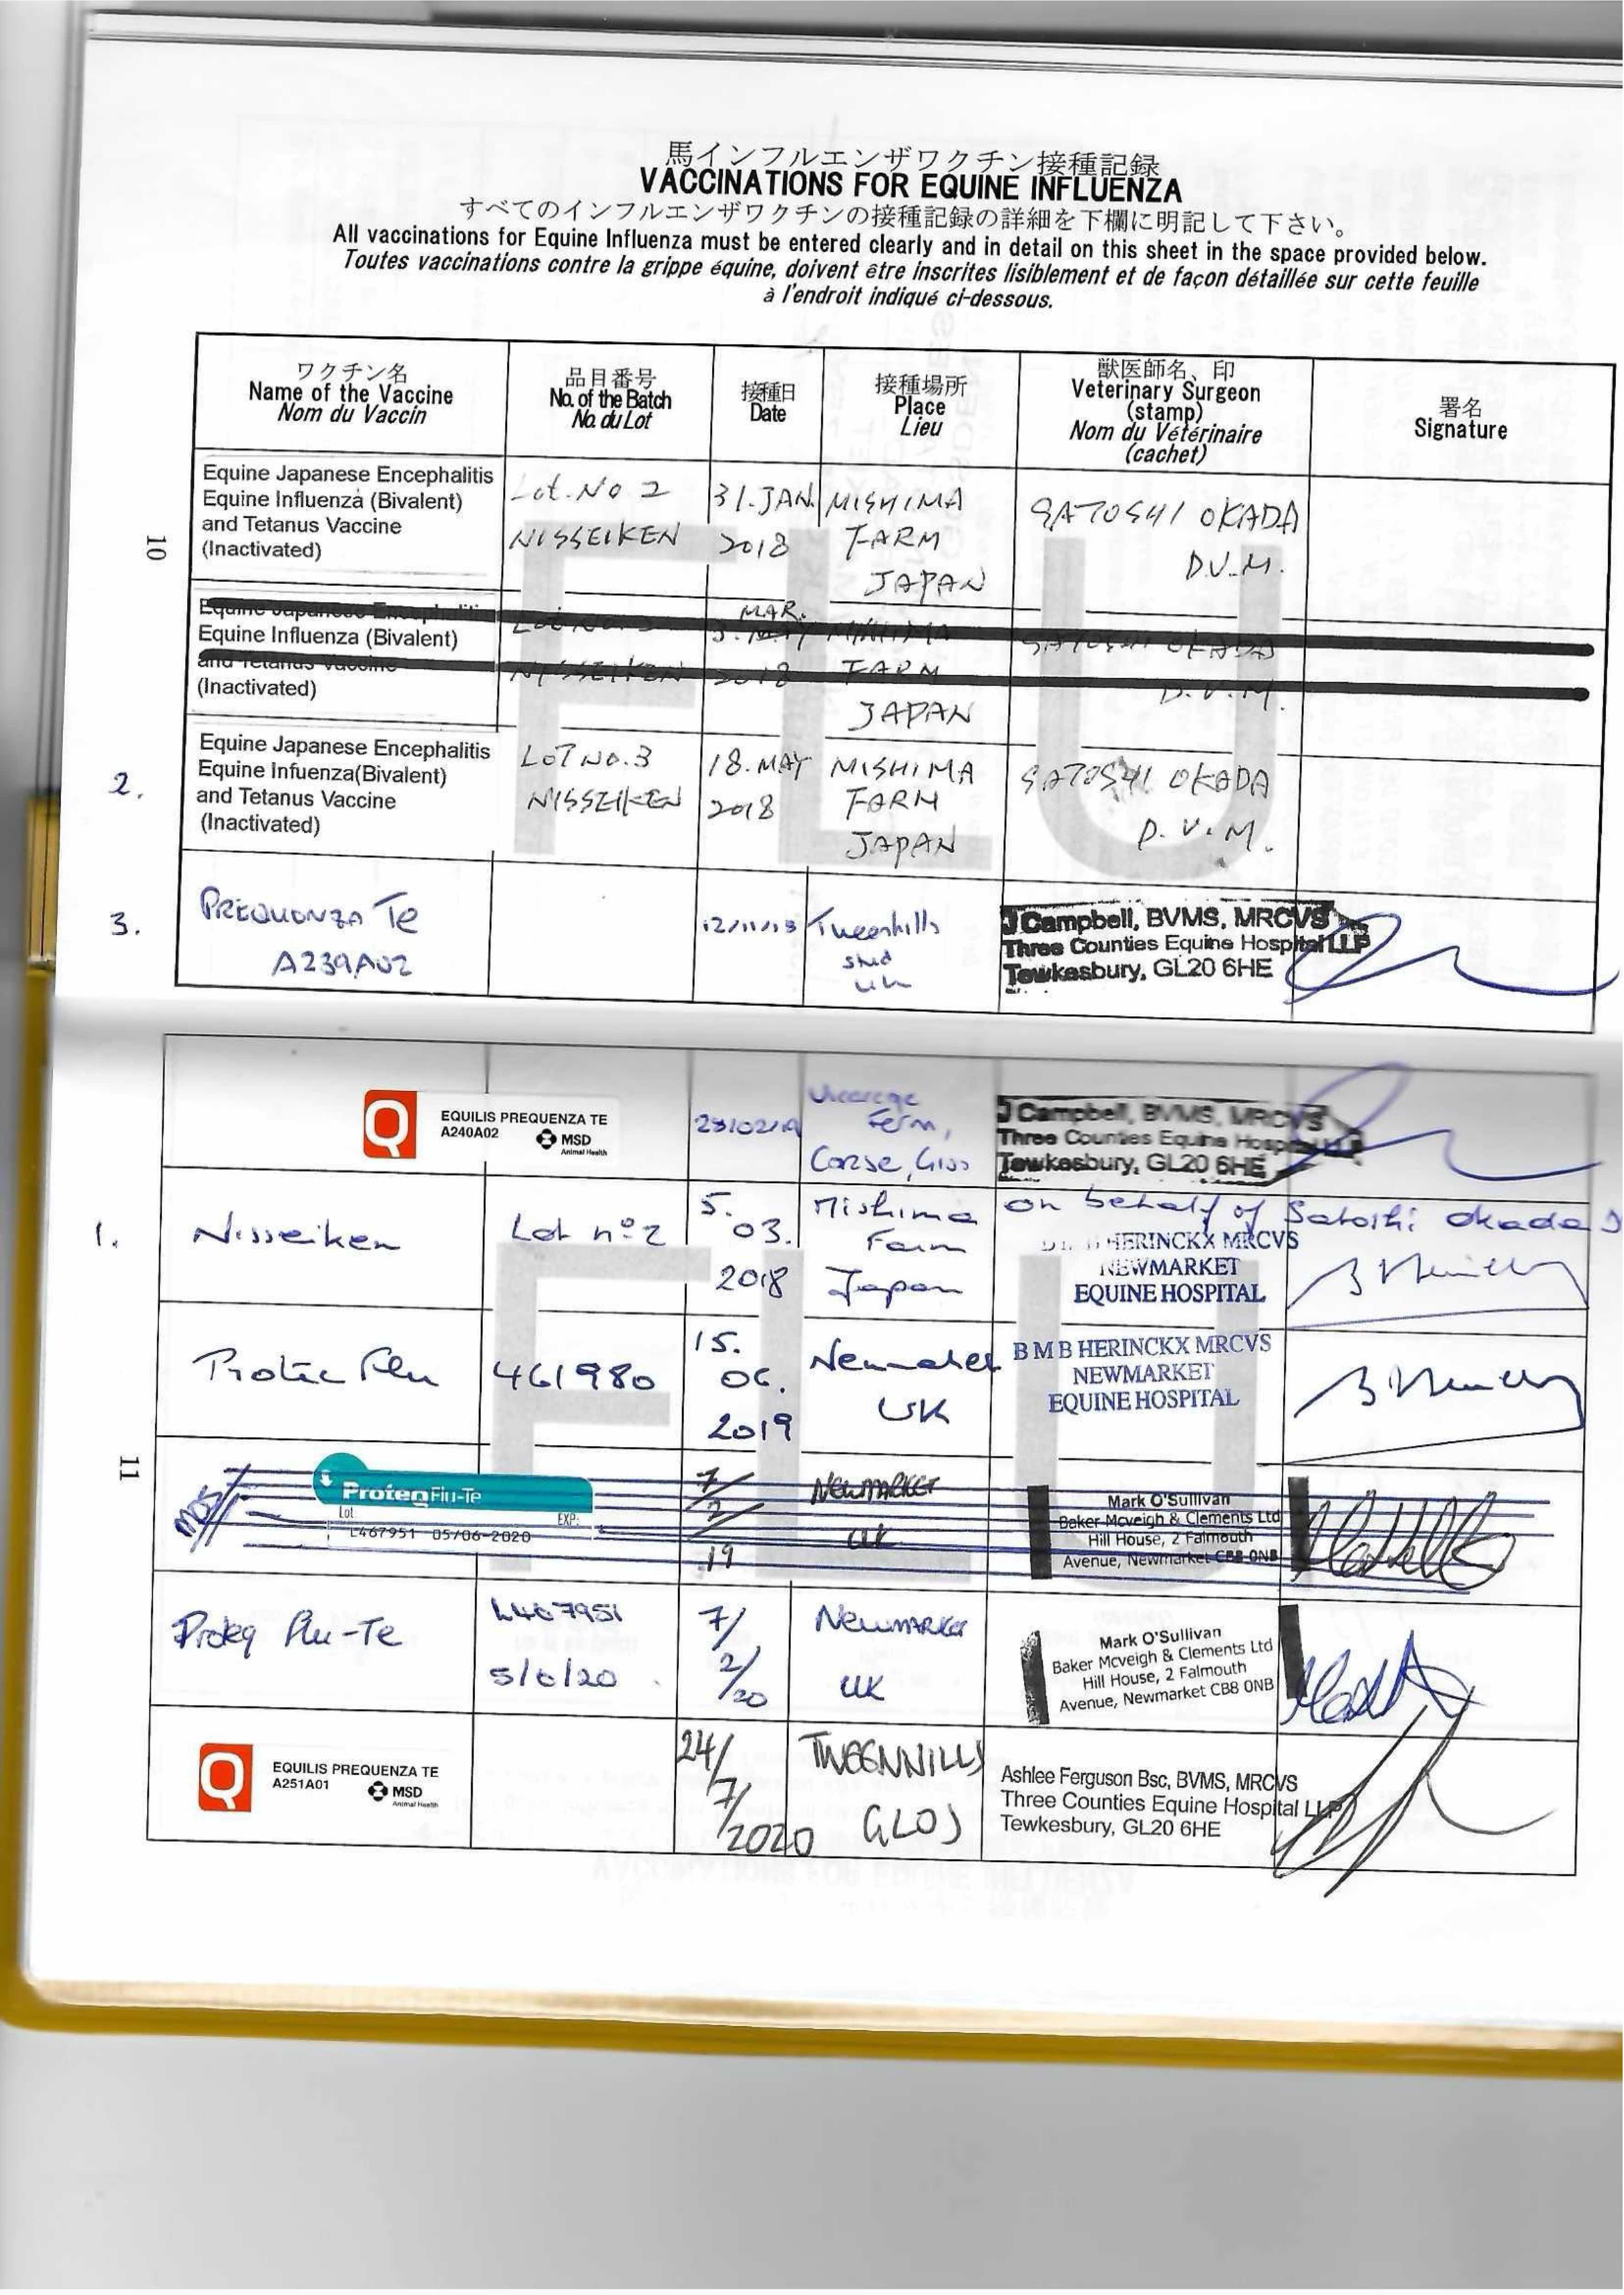 馬インフルエンザワクチン接種記録
VACCINATIONS FOR EQUINE INFLUENZA
すべてのインフルエンザワクチンの接種記録の詳細を下欄に明記して下さい。
All vaccinations for Equine Influenza must be entered clearly and in detail on this sheet in the space provided below.
Toutes vaccinations contre la grippe équine, doivent être inscrites lisiblement et de façon détaillée sur cette feuille
à l'endroit indiqué ci-dessous.
ワクチン名
Name of the Vaccine
Nom du Vaccin
品目番号
No. of the Batch
No. du Lot
接種日
Date
接種場所
Place
Lieu
獣医師名、印
Veterinary Surgeon
(stamp)
Nom du Vétérinaire
(cachet)
署名
Signature
10
FLU
Equine Japanese Encephalitis
Equine Influenza (Bivalent)
and Tetanus Vaccine
(Inactivated)
Lot. No 2
NISSEIKEN
31. JAN.
2018
MISHIMA
FARM
JAPAN
SATOSHI OKADA
D.V.M.
Equine Japanese Encephalitis
Equine Influenza (Bivalent)
and Tetanus Vaccine
(Inactivated)
NISSEIKEN
MAR.
5. MAY
2018
MISHIMA
FARM
JAPAN
SATOSHI OKADA
D.V.M.
2.
Equine Japanese Encephalitis
Equine Infuenza(Bivalent)
and Tetanus Vaccine
(Inactivated)
LOT NO.3
NISSEIKEN
18. MAY
2018
MISHIMA
FARM
JAPAN
SATOSHI OKADA
D.V.M.
3.
PREQUENZA Te
A239A02
12/11/18
Tweenhills
stud
UK
J Campbell, BVMS, MRCVS
Three Counties Equine Hospital LLP
Tewkesbury, GL20 6HE
11
FLU
EQUILIS PREQUENZA TE
A240A02
MSD
Animal Health
Farm,
Corse, Glos
J Campbell, BVMS, MRCVS
Three Counties Equine Hospital LLP
Tewkesbury, GL20 6HE
1.
Nisseiken
Lot nº2
5.
03.
2018
Mishima
Farm
Japan
on behalf of Satoshi Okada
HERINCKX MRCVS
NEWMARKET
EQUINE HOSPITAL
461980
15.
06.
2019
Newmarket
UK
B M B HERINCKX MRCVS
NEWMARKET
EQUINE HOSPITAL
MOS
ProteqFlu-Te
Lot
EXP:
L467951 05/06-2020
7/
2/
19
NEWMARKET
UK
Mark O'Sullivan
Baker Mcveigh & Clements Ltd
Hill House, 2 Falmouth
Avenue, Newmarket CB8 0NB
Proteq Flu-Te
L467951
5/6/20
7/
2/
20
Newmarket
UK
Mark O'Sullivan
Baker Mcveigh & Clements Ltd
Hill House, 2 Falmouth
Avenue, Newmarket CB8 0NB
EQUILIS PREQUENZA TE
A251A01
MSD
Animal Health
24/
7/
2020
TWEENHILLS
GLOS
Ashlee Ferguson Bsc, BVMS, MRCVS
Three Counties Equine Hospital LLP
Tewkesbury, GL20 6HE